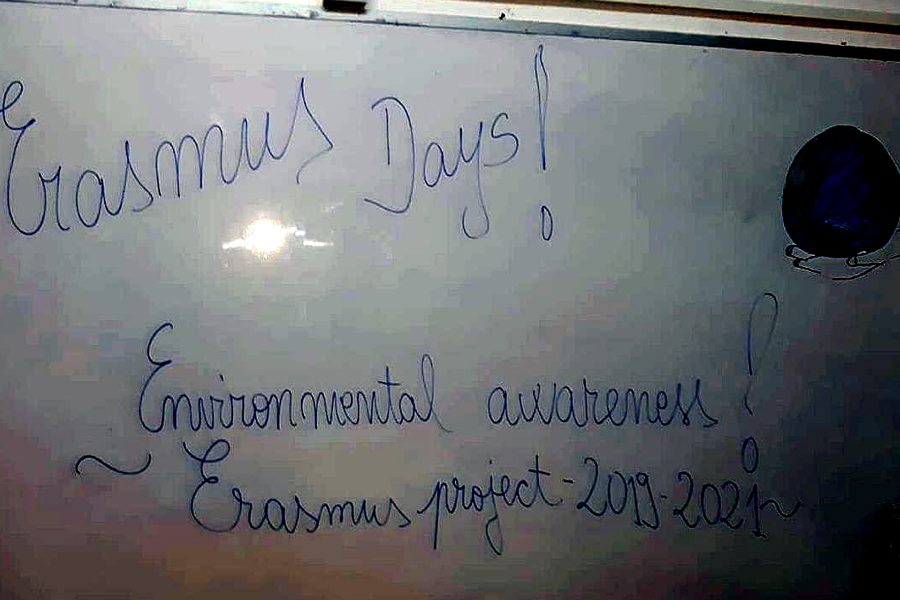 Erasmus Days!
Environmental awareness!
~ Erasmus project-2019-2021~